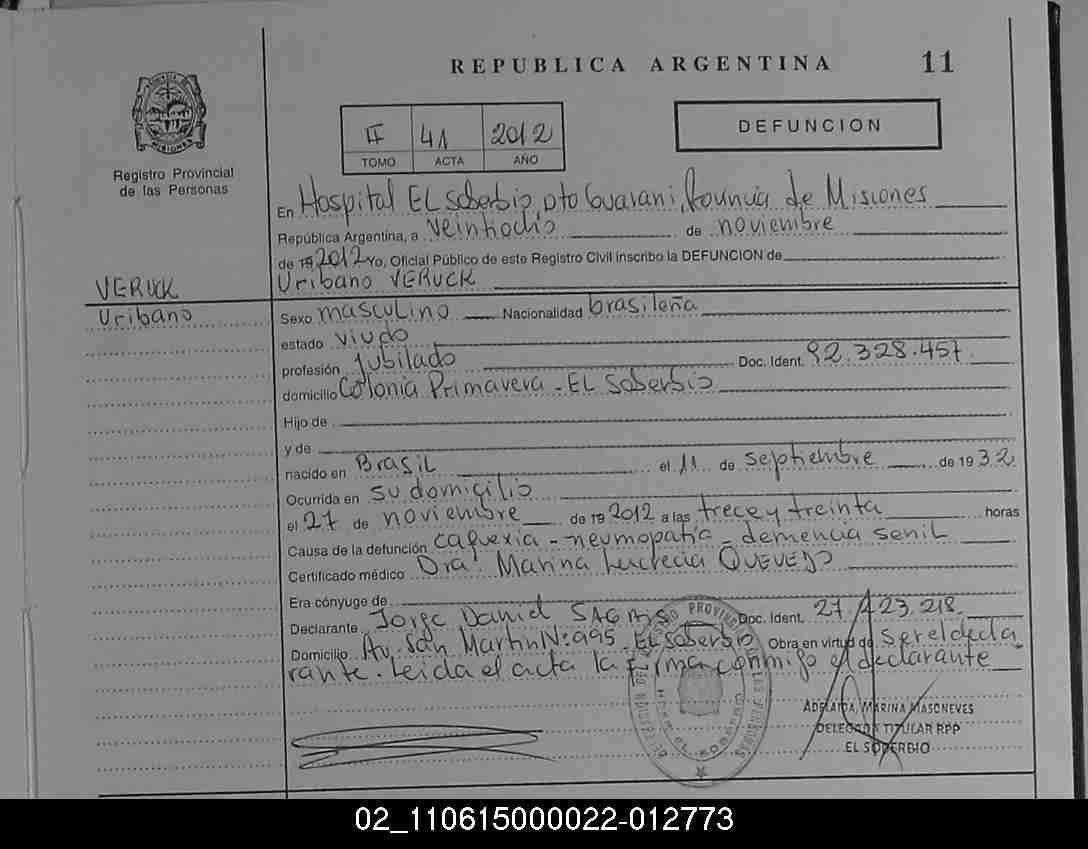 REPUBLICA ARGENTINA 11
II 41 2012
TOMO ACTA AÑO
DEFUNCION
Registro Provincial
de las Personas
En Hospital EL Soberbio, Dto Guarani, Provincia de Misiones
República Argentina, a Veintiocho de noviembre
de 19 2012 Yo, Oficial Público de este Registro Civil inscribo la DEFUNCION de
Uribano VERUCK
VERUCK
Uribano
Sexo masculino Nacionalidad brasileña
estado viudo
profesión Jubilado Doc. Ident. 92.328.457
domicilio Colonia Primavera - EL Soberbio
Hijo de
y de
nacido en Brasil el 11 de septiembre de 1932
Ocurrida en su domicilio
el 27 de noviembre de 19 2012 a las trece y treinta horas
Causa de la defunción caquexia - neumopatía - demencia senil
Certificado médico Dra. Marina Lucrecia QUEVEDO
Era cónyuge de
Declarante Jorge Daniel Doc. Ident. 27.423.218
Domicilio Av. San Martin Nº 995 - EL Soberbio Obra en virtud de ser el decla
rante. Leida el acta la firma conmigo el declarante
ADELAIDA, MARINA MASONEVES
DELEGADA TITULAR RPP
EL SOBERBIO
02_110615000022-012773